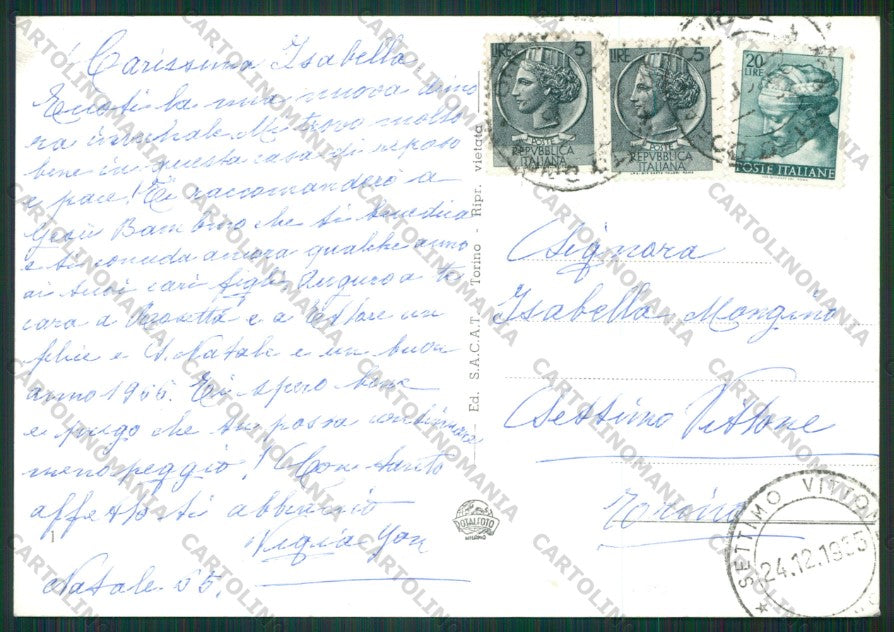 Carissima Isabella
Eccoti la mia nuova dimo
ra invernale Mi trovo molto
bene in questa casa di riposo
e pace! Ti raccomanderò a
Gesù Bambino che ti benedica
e ti conceda ancora qualche anno
ai tuoi cari figli. Auguro a te
cara a Rosetta e a Ettore un
felice e S. Natale e un buon
anno 1966. Ti spero bene
e prego che tu possa continuare
meno peggio! Con tanto
affetto ti abbraccio
Natale 65.
1
Ed. S.A.C.A.T. Torino - Ripr. vietata
LIRE 5
POSTE
REPVBBLICA
ITALIANA
LIRE 5
POSTE
REPVBBLICA
ITALIANA
20
LIRE
POSTE ITALIANE
Signora
Isabella Mongino
Settimo Vittone
Torino
ROTALFOTO
MILANO
SETTIMO VITTO
CARTOLINOMANIA